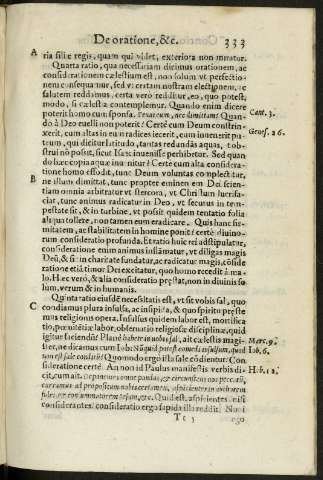 De oratione, &c. 333
A ria filiæ regis, quam qui videt, exteriora non miratur.
Quarta ratio, qua necessariam dicimus orationem, ac
considerationem cælestium est, non solùm vt perfectio-
nem consequamur, sed vt certam nostram electionem, ac
salutem reddamus, certa verò redditur, eo, quo potest,
modo, si cælestia contemplemur. Quando enim dicere
poterit homo cum sponsa. Tenui eum, nec dimittam? Quan-
Cant. 3.
do à Deo euelli non poterit? Certè cum Deum constrin-
xerit, cum altas in eum radices iecerit, cum inuenerit pu-
Genes. 26.
teum, qui dicitur latitudo, tantas redundās aquas, tob-
strui nō possit, sicut Isaac inuenisse perhibetur. Sed quan-
do hæc copia aquæ inuenitur? Certè cum alta considera-
tione homo effodit, tunc Deum voluntas complectitur,
B ne illum dimittat, tunc propter eminen em Dei scien-
tiam omnia arbitratur vt stercora, vt Christum lucrifa-
ciat, tunc animus radicatur in Deo, vt securus in tem-
pestate sit, & in turbine, vt possit quidem tentatio folia
aliqua tollere, non tamen eum eradicare. Quis hanc fir-
mitatem, ac stabilitatem in homine ponit? certè diuino-
rum consideratio profunda. Et ratio huic rei adstipulatur,
consideratione enim animus inflāmatur, vt diligas magis
Deū, & sic in charitate fundatur, ac radicatur magis, cōside
ratione etiā timor Dei excitatur, quo homo recedit à ma-
lo. Hæc verò, & alia consideratio præstat, non in diuinis so
lùm, verùm & in humanis.
Quinta ratio eiusdē necessitatis est, vt sit vobis sal, quo
C condiamus plura insulsa, ac insipida, & quo spiritu præste
mus religionis opera. Insulsus quidem labor est, mortifica
tio, pœnitētiæ labor, obseruatio religiosæ disciplinæ, quid
igitur faciendū? Planè habete in vobis sal, ait cælestis magi-
Marc. 9.
ster, ne dicamus cum Iob: Nūquid potest comedi insulsum, quod
Iob. 6.
non est sale conditū? Quomodo ergo illa sale cōdientur? Con-
sideratione certè. An non id Paulus manifestis verbis di-
Heb. 12.
cit, cum ait. Deponentes omne pondus, & circunstans nos peccatū,
curramus ad propositum nobis certamen, aspicientes in authorem
fidei, & consummatorem Iesum, &c. Quid est, aspicientes, nisi
considerantes? consideratio ergo sapida illa reddit. Nun
Tt 3
ego